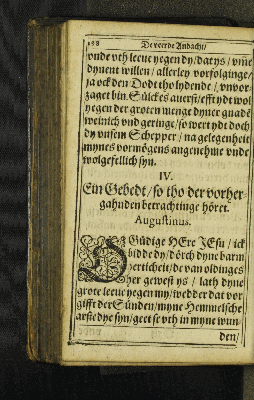 158 De veerde Andacht/
vnde vth leeue yegen dy/dat ys/ vm̃e
dynent willen/ allerley vorfolginge/
ja ock den Dodt tho lydende / vnvor-
zaget bin. Sülckes auerst/efft yd wol
yegen der groten menge dyner gnadē
weinich vnd geringe/so wert ydt doch
dy vnsem Schepper/ na gelegenheit
mynes vormögens angenehme vnde
wolgefellich syn.
IV.
Ein Gebedt/ so tho der vorher-
gahnden betrachtinge höret.
Augustinus.
O Güdige HEre JEsu / ick
bidde dy/dörch dyne barm-
herticheit/de van oldinges
her gewest ys / lath dyne
grote leeue yegen my/wedder dat vor-
gifft der Sünden/ myne Hemmelsche
arstedye syn/geet se vth in myne wun-
den/